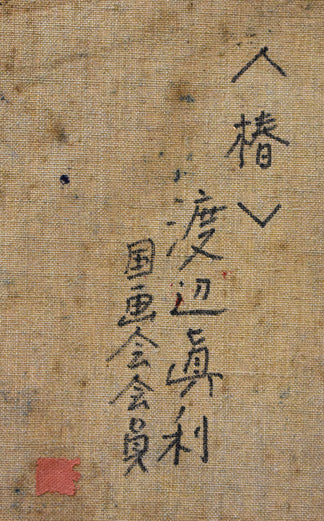 〈椿〉
渡辺眞利
国画会会員